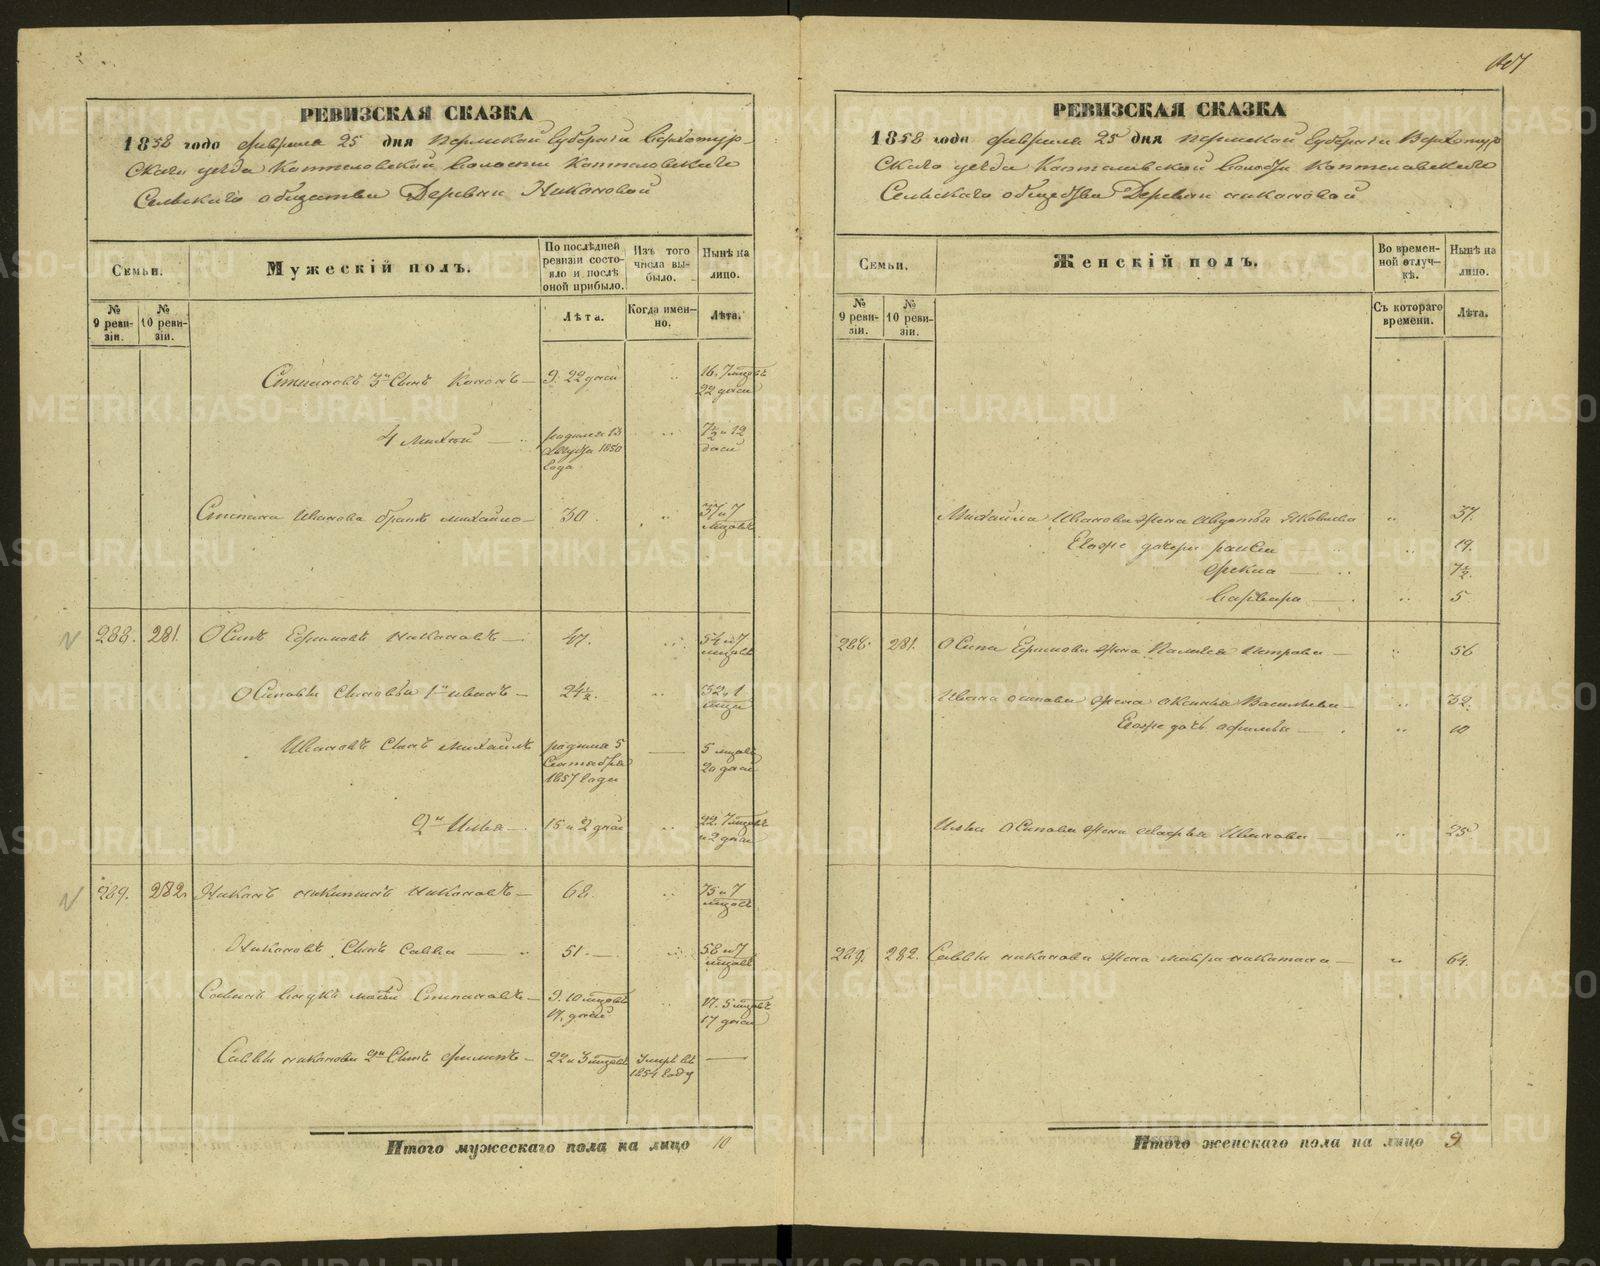 РЕВИЗСКАЯ СКАЗКА
1858 года февраля 25 дня Пермской Губернии Верхотур-
скаго уезда Коптеловской Волости Коптеловскаго
Сельскаго общества Деревни Никоновой
Семьи.
Мужескій полъ.
По послѣдней ревизіи состояло и послѣ оной прибыло.
Изъ того числа выбыло.
Нынѣ на лицо.
№ 9 ревизіи.
№ 10 ревизіи.
Лѣта.
Когда именно.
Лѣта.
Степановъ 3й сынъ Кононъ — 9. 22 дней 16. 7 мцовъ 22 дней
4 — родился 13 августа 1850 года 7½ и 12 дней
Степана Иванова братъ Михайло — 30 37 и 7 мцовъ
288. 281. Осипъ Никоновъ — 47. 54 и 7 мцовъ
Осиповы сыновья 1й Иванъ — 24½. 32 и 1 мцъ
Ивановъ сынъ Михайлъ родился 5 Сентября 1857 года — 5 мцовъ 20 дней
2й Илья — 15 и 2 дней 22. 7 мцовъ и 2 дней
289. 282. Никонъ Никитинъ Никоновъ — 68. 75 и 7 мцовъ
Никоновъ сынъ Савва — 51. — 58 и 7 мцовъ
Савинъ внукъ Степановъ — 9. 10 мцовъ 17. дней 17. 5 мцовъ 17 дней
Саввы Никонова 2й сынъ Филипъ — 22 и 3 мцовъ умеръ въ 1854 году —
Итого мужескаго пола на лицо 10
РЕВИЗСКАЯ СКАЗКА
1858 года февраля 25 дня Пермской Губернии Верхотур
скаго уезда Коптеловской Волости Коптеловскаго
Сельскаго общества Деревни Никоновой
Семьи.
Женскій полъ.
Во временной отлучкѣ.
Нынѣ на лицо.
№ 9 ревизіи.
№ 10 ревизіи.
Съ котораго времени.
Лѣта.
Михайла Иванова жена Авдотья Яковлева 37.
Егоже дочери — 19.
Фекла — 7½.
Варвара — 5
288. 281. Осипа жена Петрова — 56
Ивана Осипова жена Аксинья Васильева — 32.
Егоже дочь Афимья — 10
Ильи Осипова жена Иванова — 25
289. 282. Саввы Никонова жена Мавра — 64.
Итого женскаго пола на лицо 9
METRIKI.GASO-URAL.RU